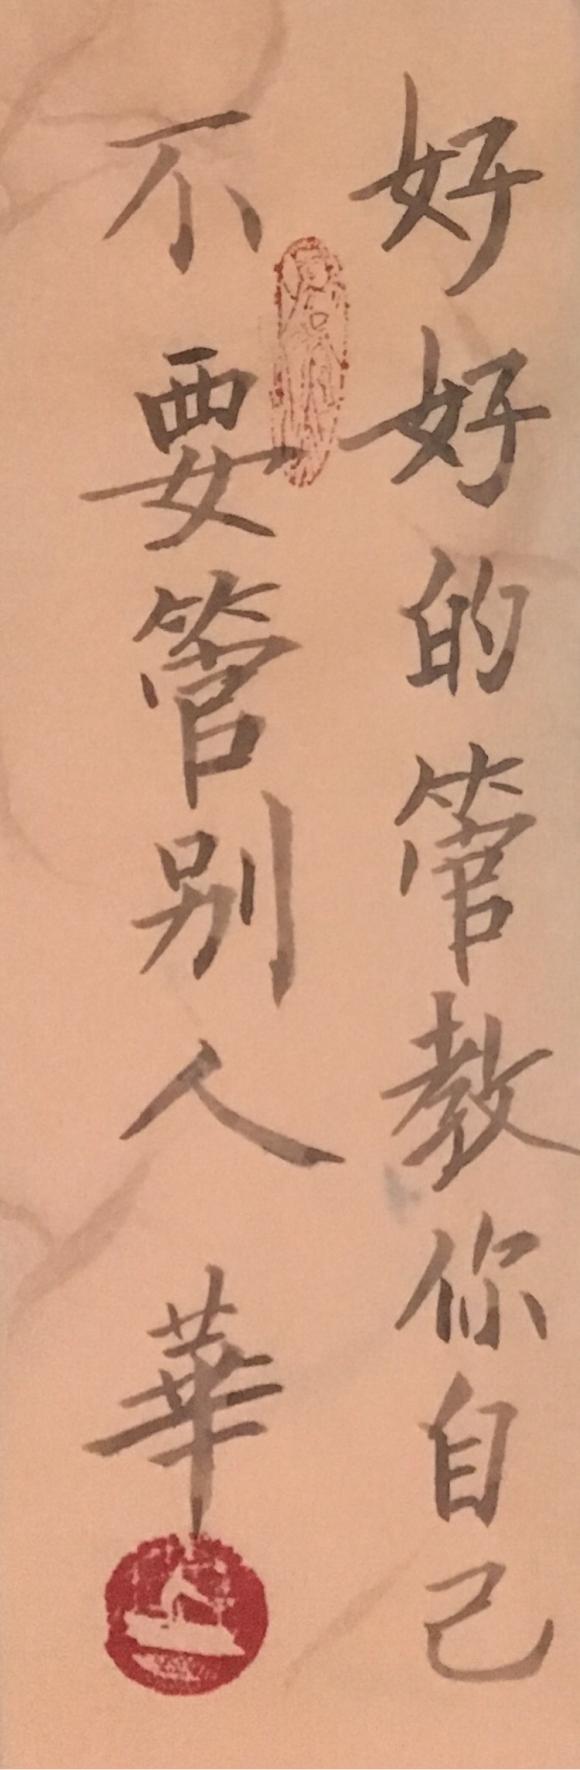 好好的管教你自己
不要管別人
華